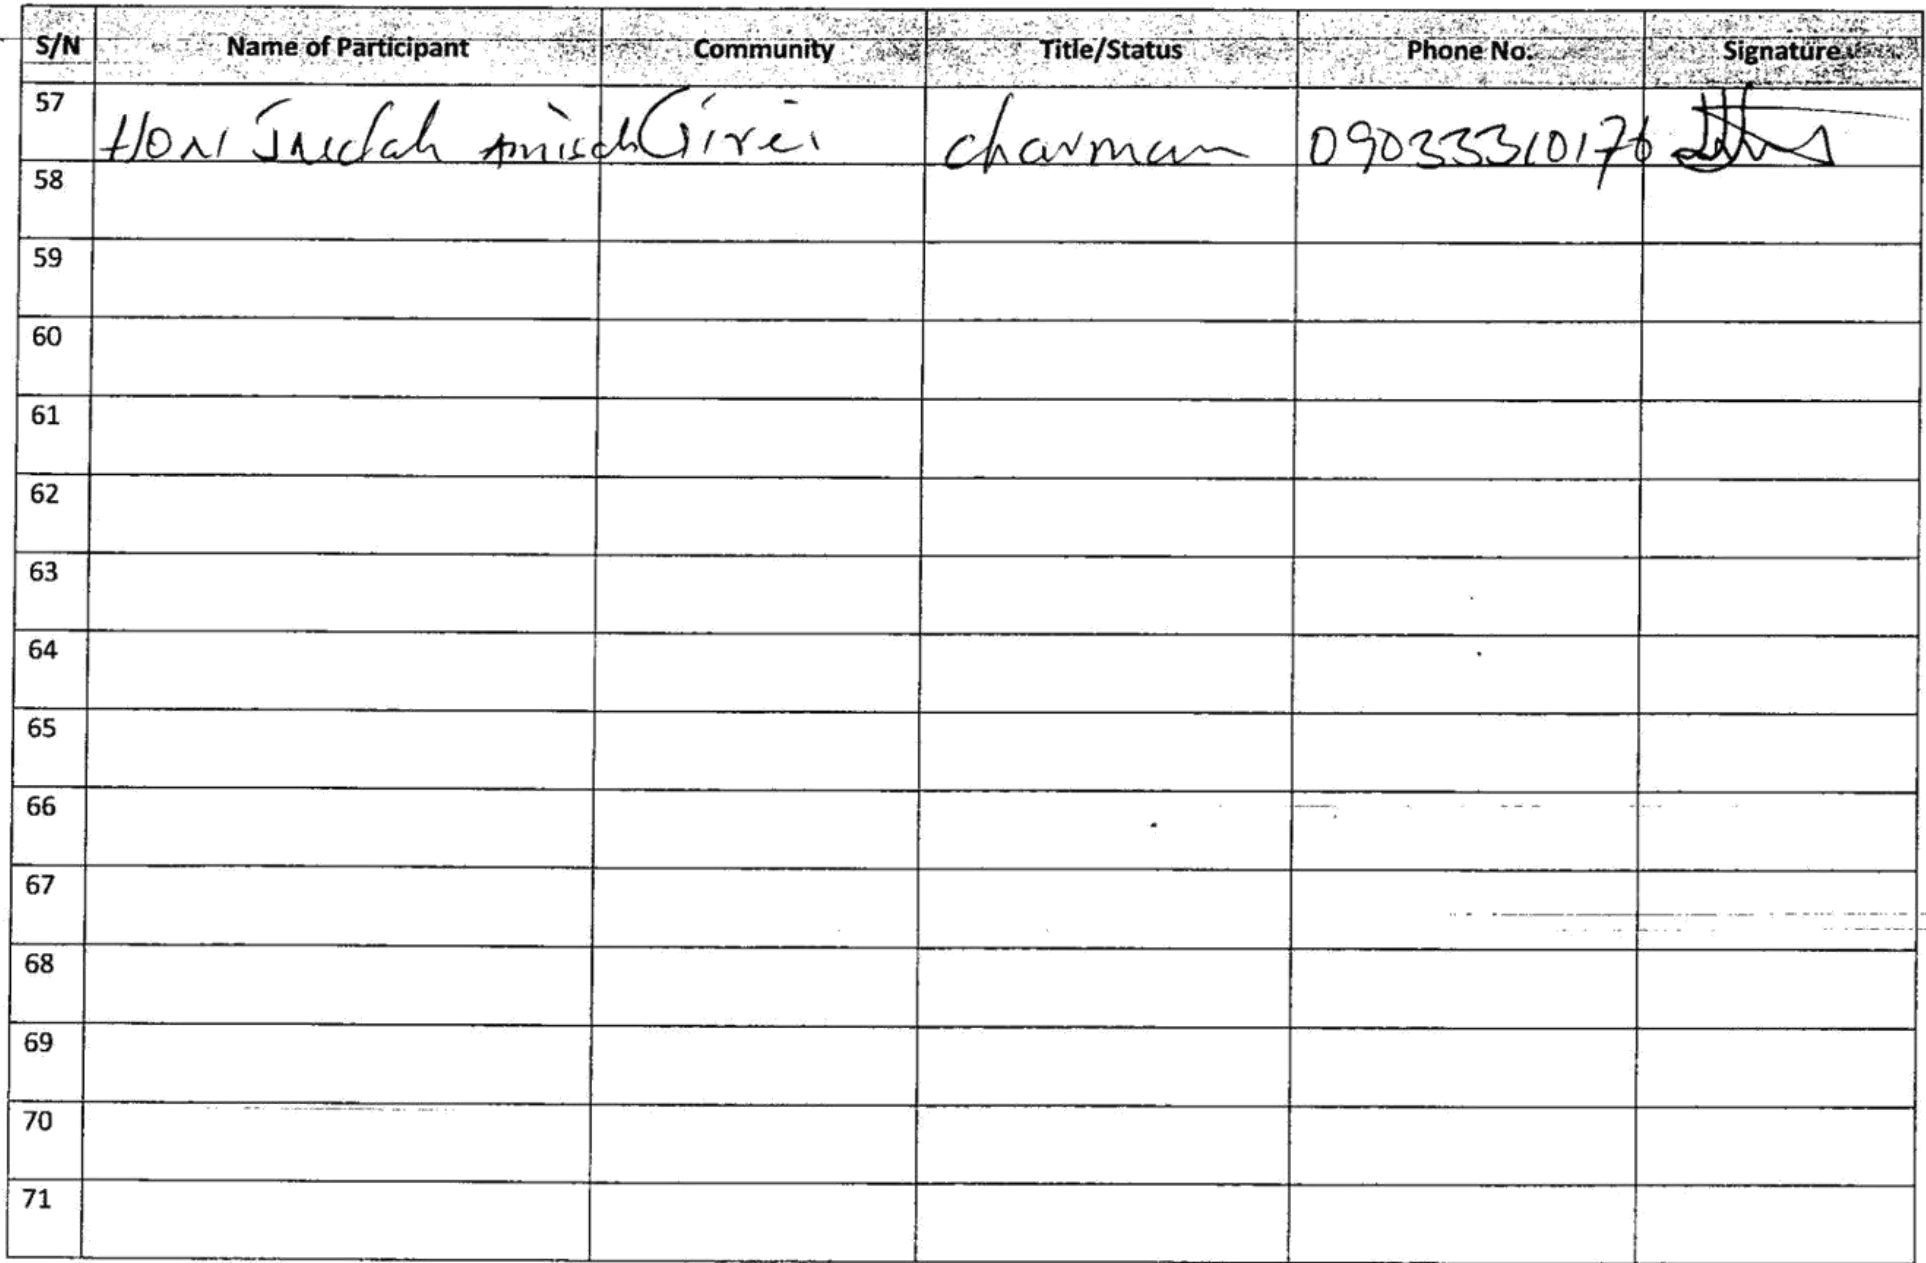 S/N Name of Participant Community Title/Status Phone No. Signature
57 HON Judah Amisah Girei charman 09033310176
58
59
60
61
62
63
64
65
66
67
68
69
70
71